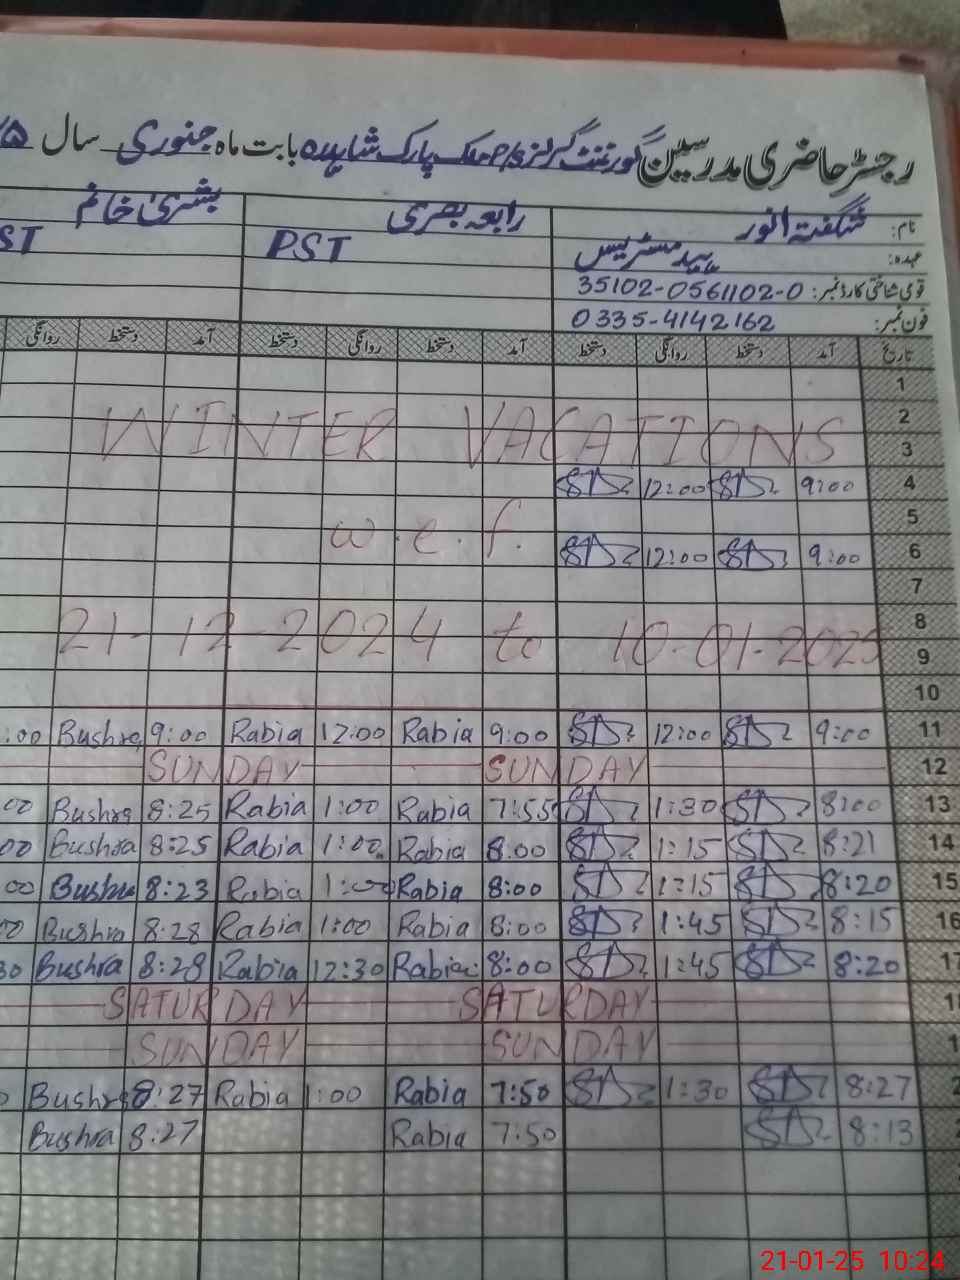 رجسٹر حاضری مدرسین گورنمنٹ گرلز P/S ملک پارک شاہدرہ بابت ماہ جنوری سال
نام: شگفتہ انور رابعہ بصری بشریٰ خانم
عہدہ: ہیڈ مسٹریس PST ST
قومی شناختی کارڈ نمبر: 35102-0561102-0
فون نمبر: 0335-4142162
تاریخ آمد دستخط روانگی دستخط آمد دستخط روانگی دستخط آمد دستخط روانگی
1
2
WINTER VACATIONS
3
12:00 9:00 4
w.e.f. 5
12:00 9:00 6
7
8
21-12-2024 to 10-01-2025
9
10
:00 Bushra 9:00 Rabia 12:00 Rabia 9:00 12:00 9:00 11
SUNDAY SUNDAY 12
00 Bushra 8:25 Rabia 1:00 Rabia 7:55 1:30 8:00 13
00 Bushra 8:25 Rabia 1:00 Rabia 8:00 1:15 8:21 14
00 Bushra 8:23 Rabia 1:00 Rabia 8:00 1:15 8:20 15
00 Bushra 8:28 Rabia 1:00 Rabia 8:00 1:45 8:15 16
30 Bushra 8:28 Rabia 12:30 Rabia 8:00 1:45 8:20 17
SATURDAY SATURDAY
SUNDAY SUNDAY
Bushra 8:27 Rabia 1:00 Rabia 7:50 1:30 8:27
Bushra 8:27 Rabia 7:50 8:13
21-01-25 10:24